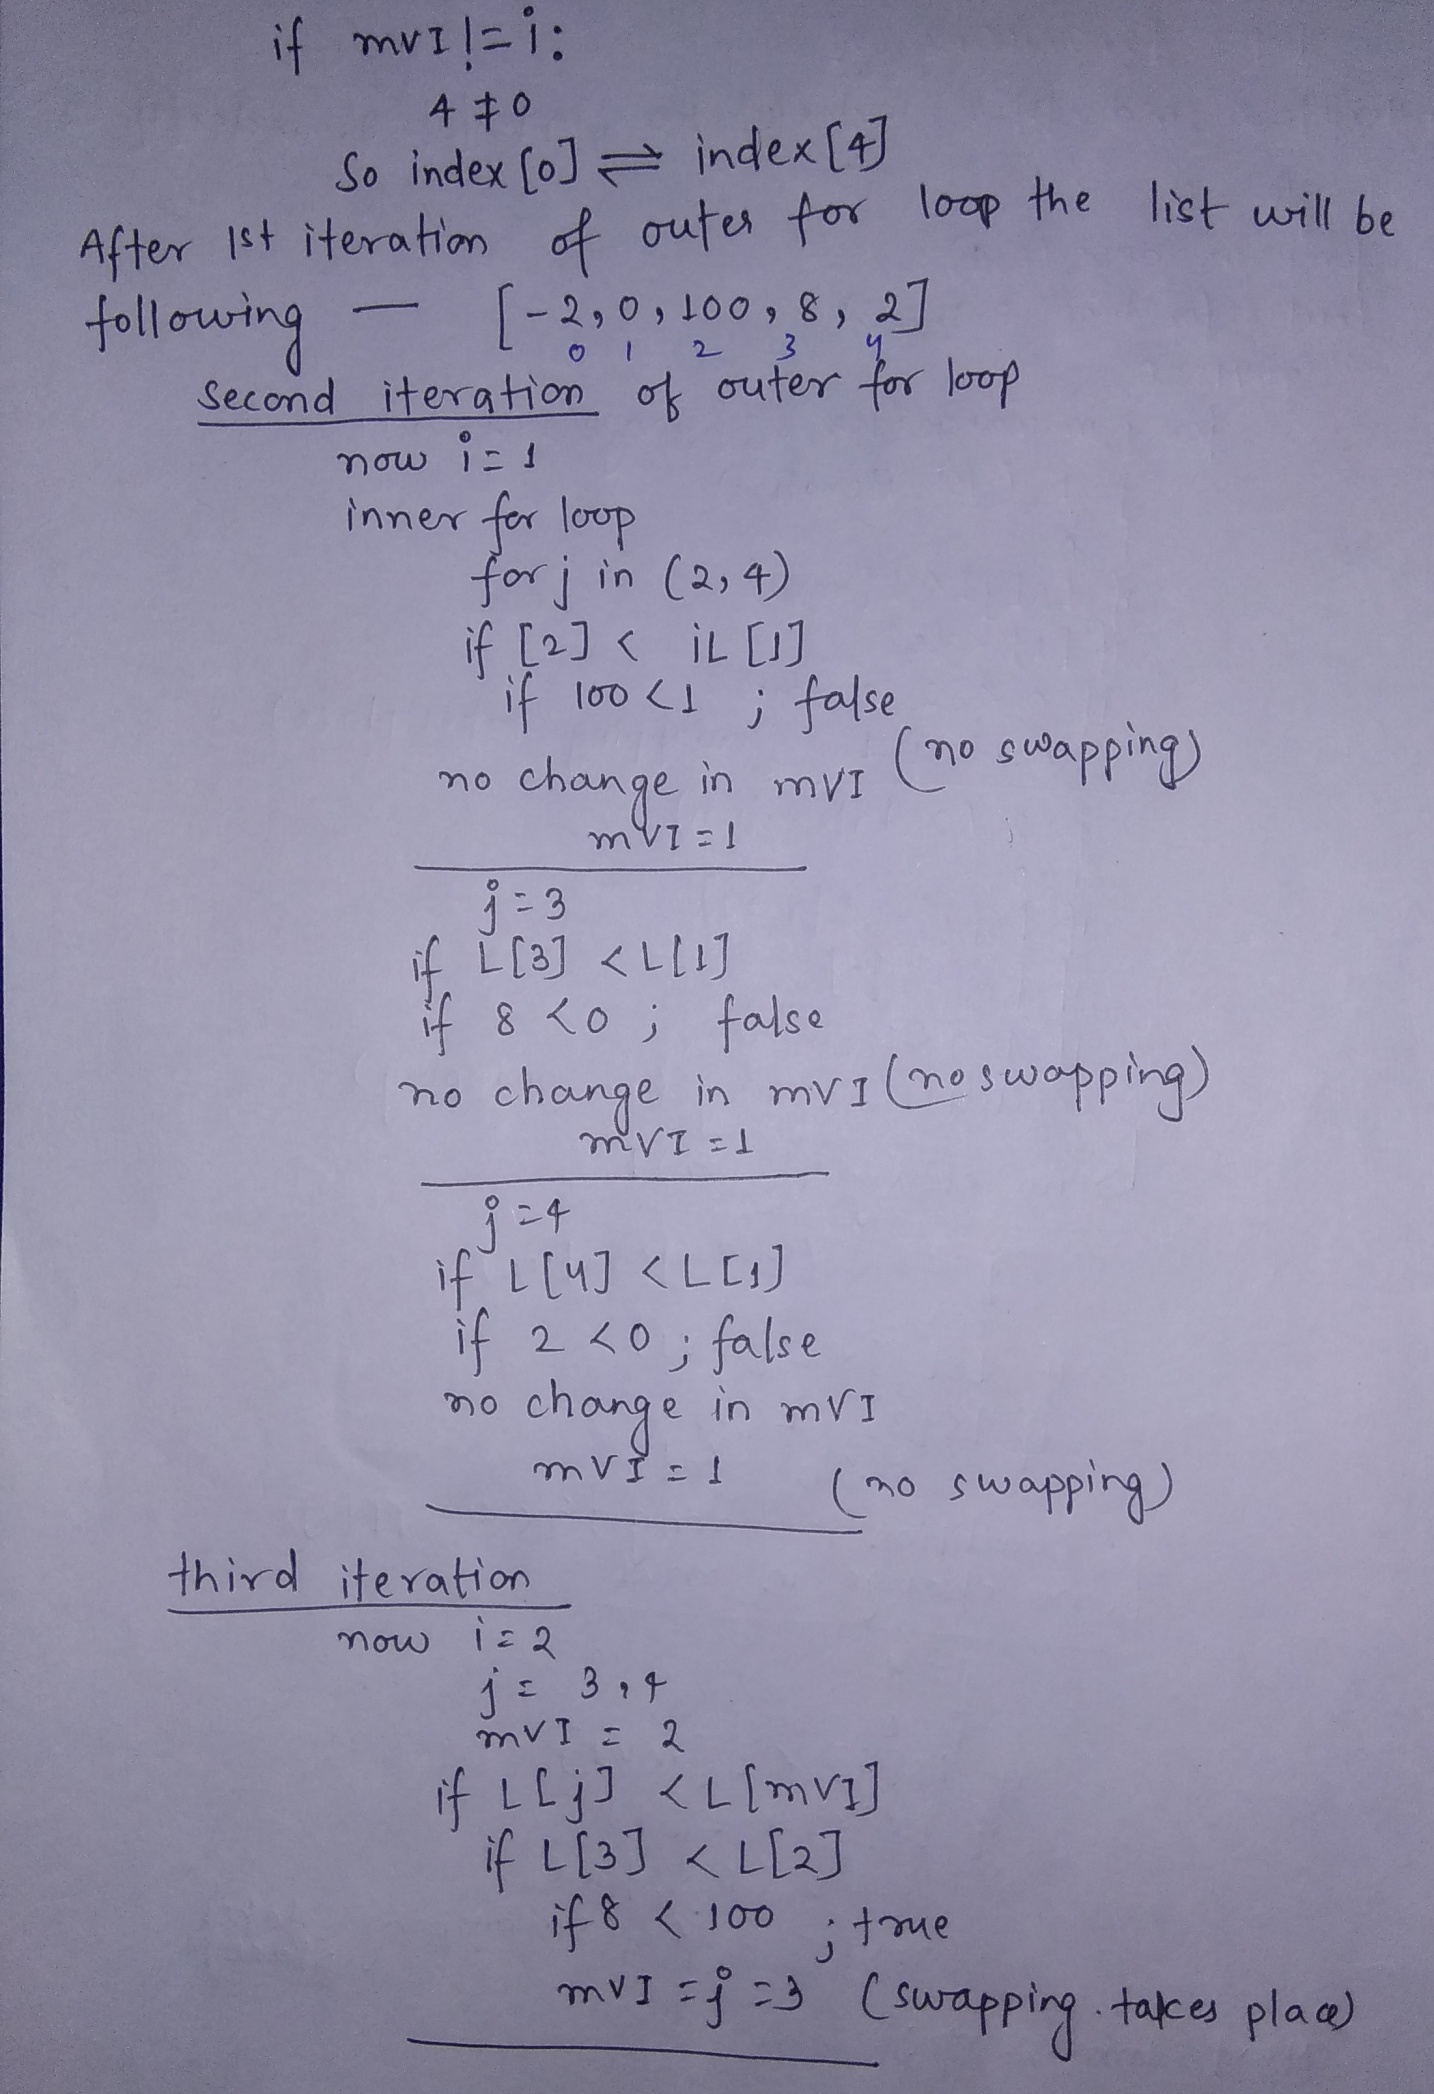 if mvI != i:
4 ≠ 0
So index [0] ⇌ index [4]
After 1st iteration of outer for loop the list will be
following — [-2, 0, 100, 8, 2]
0 1 2 3 4
second iteration of outer for loop
now i = 1
inner for loop
for j in (2, 4)
if [2] < iL [1]
if 100 < 1 ; false
no change in mvI (no swapping)
mVI = 1
j = 3
if L[3] < L[1]
if 8 < 0 ; false
no change in mvI (no swapping)
mVI = 1
j = 4
if L[4] < L[1]
if 2 < 0 ; false
no change in mVI
mVI = 1 (no swapping)
third iteration
now i = 2
j = 3, 4
mVI = 2
if L[j] < L[mVI]
if L[3] < L[2]
if 8 < 100 ; true
mVI = j = 3 (swapping takes place)